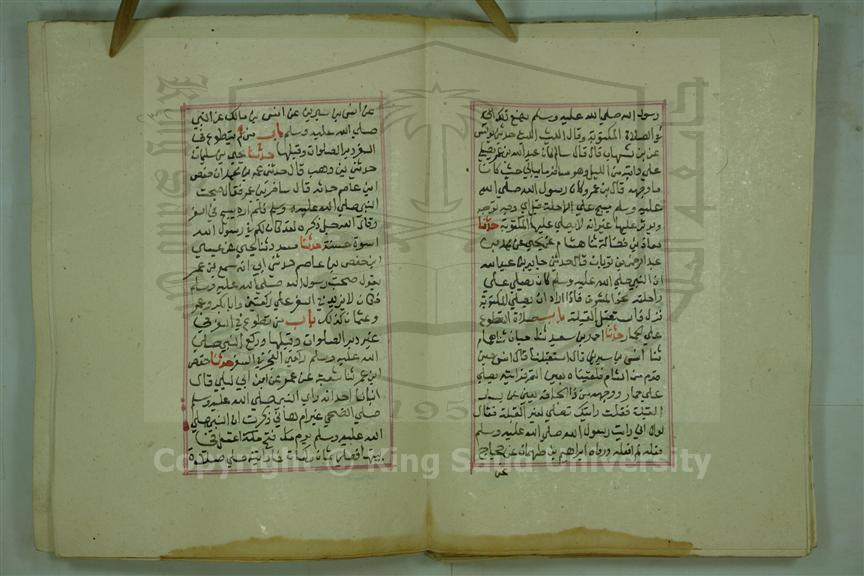 رسول الله صلى الله عليه وسلم يصنع ذلك في
في الصلاة المكتوبة وقال الليث حدثني يونس
عن بن شهاب قال قال سالم كان عبدالله بن عمر يصلي
على دابته من الليل وهو مسافر ما يبالي حيث كان
ما وجهه قال بن عمر وكان رسول الله صلى الله
عليه وسلم يسبح على الراحلة قبل اي وجه توجه
ويوتر عليها غير انه لا يصلي عليها المكتوبة حدثنا
معاذ بن فضالة ثنا هشام عن يحيى عن محمد بن
عبد الرحمن بن ثوبان قال حدثني جابر بن عبد الله
ان النبي صلى الله عليه وسلم كان يصلي على
راحلته نحو المشرق فاذا اراد ان يصلي المكتوبة
نزل فاستقبل القبلة باب صلاة التطوع
على الحمار حدثنا احمد بن سعيد ثنا حبان ثنا همام
ثنا انس بن سيرين قال استقبلنا انس حين
قدم من الشام فلقيناه بعين التمر فرايته يصلي
على حمار ووجهه من ذا الجانب يعني عن يسار
القبلة فقلت رايتك تصلي لغير القبلة فقال
لولا اني رايت رسول الله صلى الله عليه وسلم
فعله لم افعله ورواه ابراهيم بن طهمان عن حجاج
عن
عن انس بن سيرين عن انس بن مالك عن النبي
صلى الله عليه وسلم باب من لم يتطوع في
السفر دبر الصلوات وقبلها حدثنا يحيى بن سليمان
حدثني بن وهب قال حدثني عمر بن محمد ان حفص
ابن عاصم حدثه قال سافر بن عمر فقال صحبت
النبي صلى الله عليه وسلم فلم اره يسبح في السفر
وقال الله جل ذكره لقد كان لكم في رسول الله
اسوة حسنة حدثنا مسدد ثنا يحيى عن عيسى
ابن حفص بن عاصم حدثني ابي انه سمع بن عمر
يقول صحبت رسول الله صلى الله عليه وسلم
فكان لا يزيد في السفر على ركعتين وابا بكر وعمر
وعثمان كذلك باب من تطوع في السفر في
غير دبر الصلوات وقبلها وركع النبي صلى
الله عليه وسلم ركعتي الفجر في السفر حدثنا حفص
ابن عمر ثنا شعبة عن عمرو عن ابن ابي ليلى قال
انبانا احد انه راى النبي صلى الله عليه وسلم
صلى الضحى غير ام هانئ ذكرت ان النبي صلى
الله عليه وسلم يوم فتح مكة اغتسل في
بيتها فصلى ثمان ركعات فما رايته صلى صلاة
جامعة الملك سعود
King Saud University
1957
Copyright © King Saud University